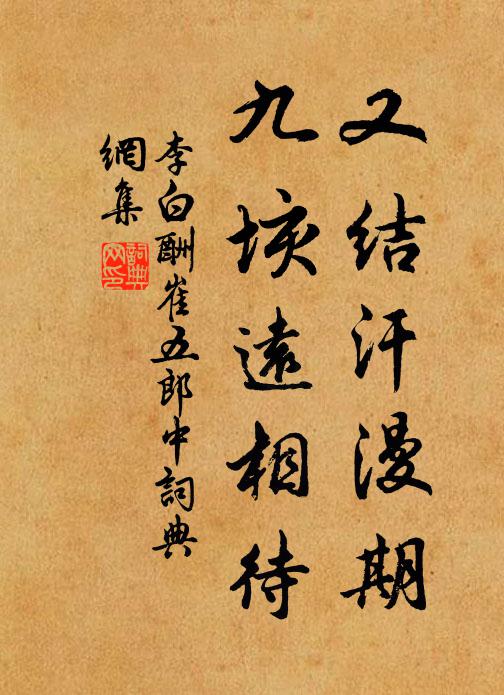 又结汗漫期
九垓遠相待
李白酬崔五郎中詞典
網集
詞典
网印